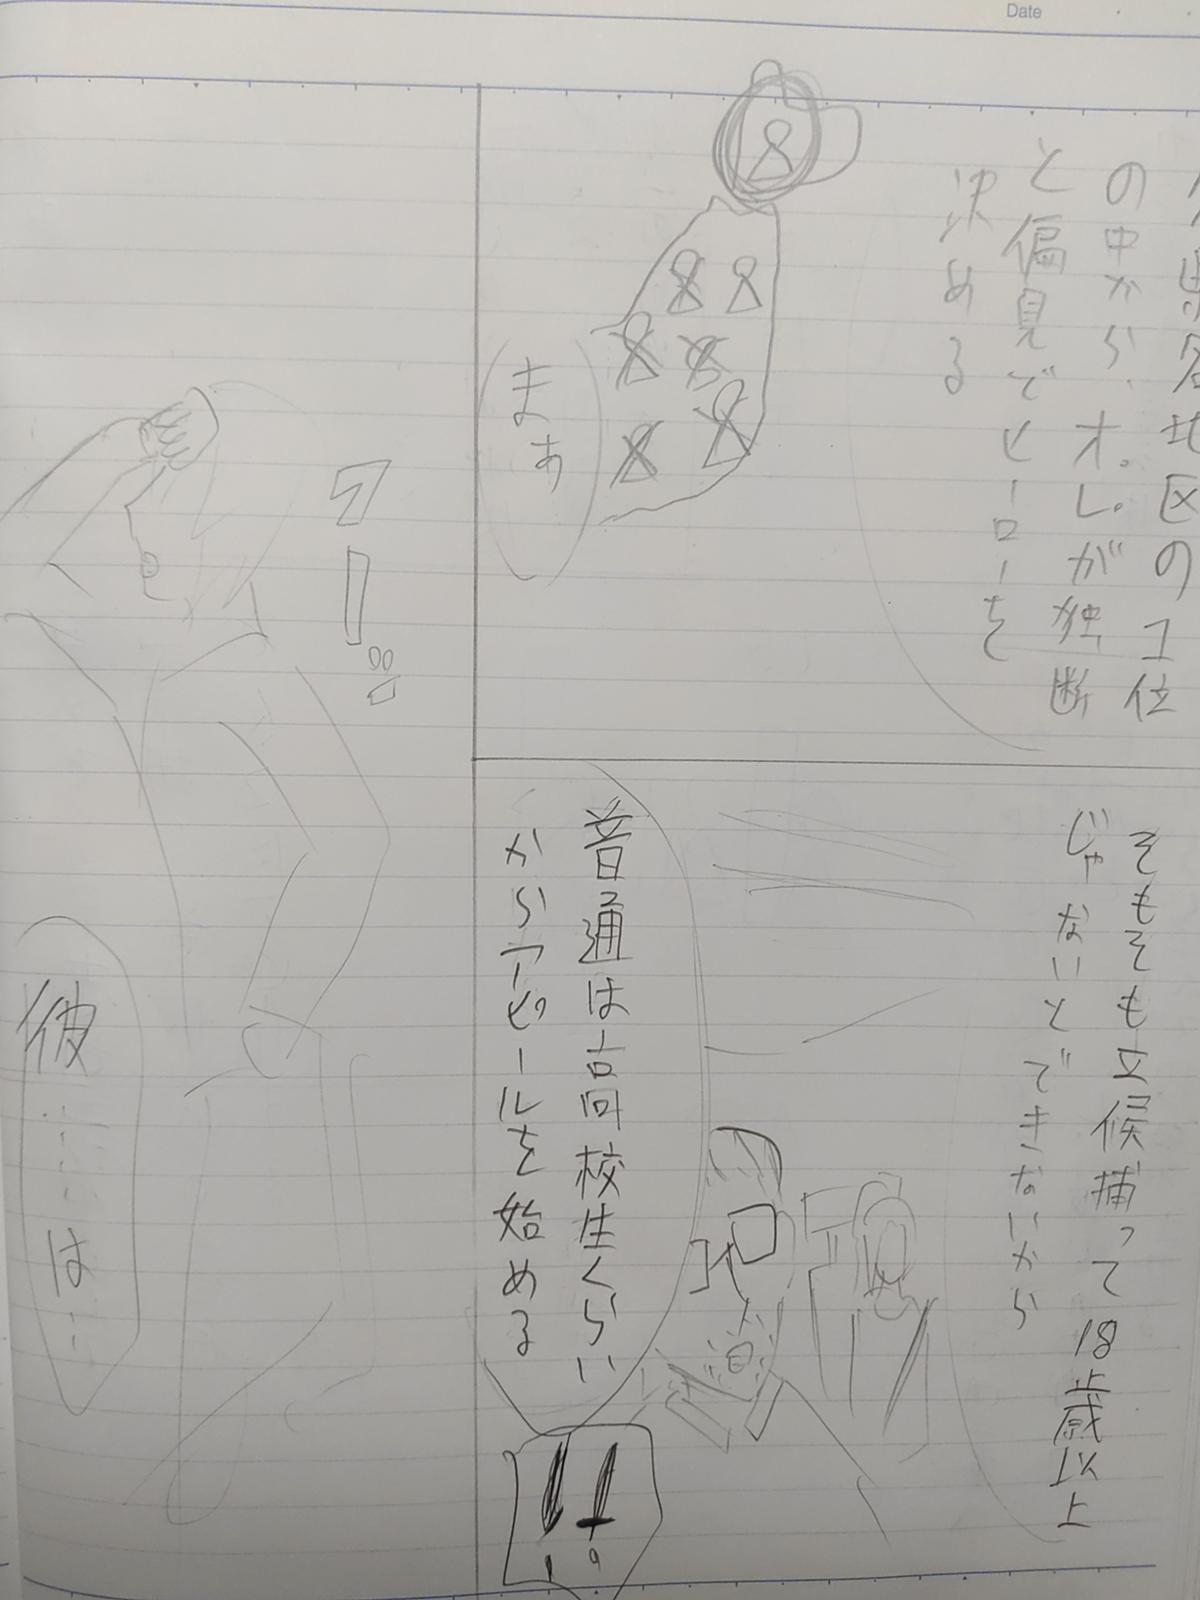 Date
各地区の1位
の中から、オレが独断
と偏見でヒーローを
決める
まぁ
そもそも立候補って18歳以上
じゃないとできないから
普通は高校生くらい
からアピールを始める
!!
彼……は…